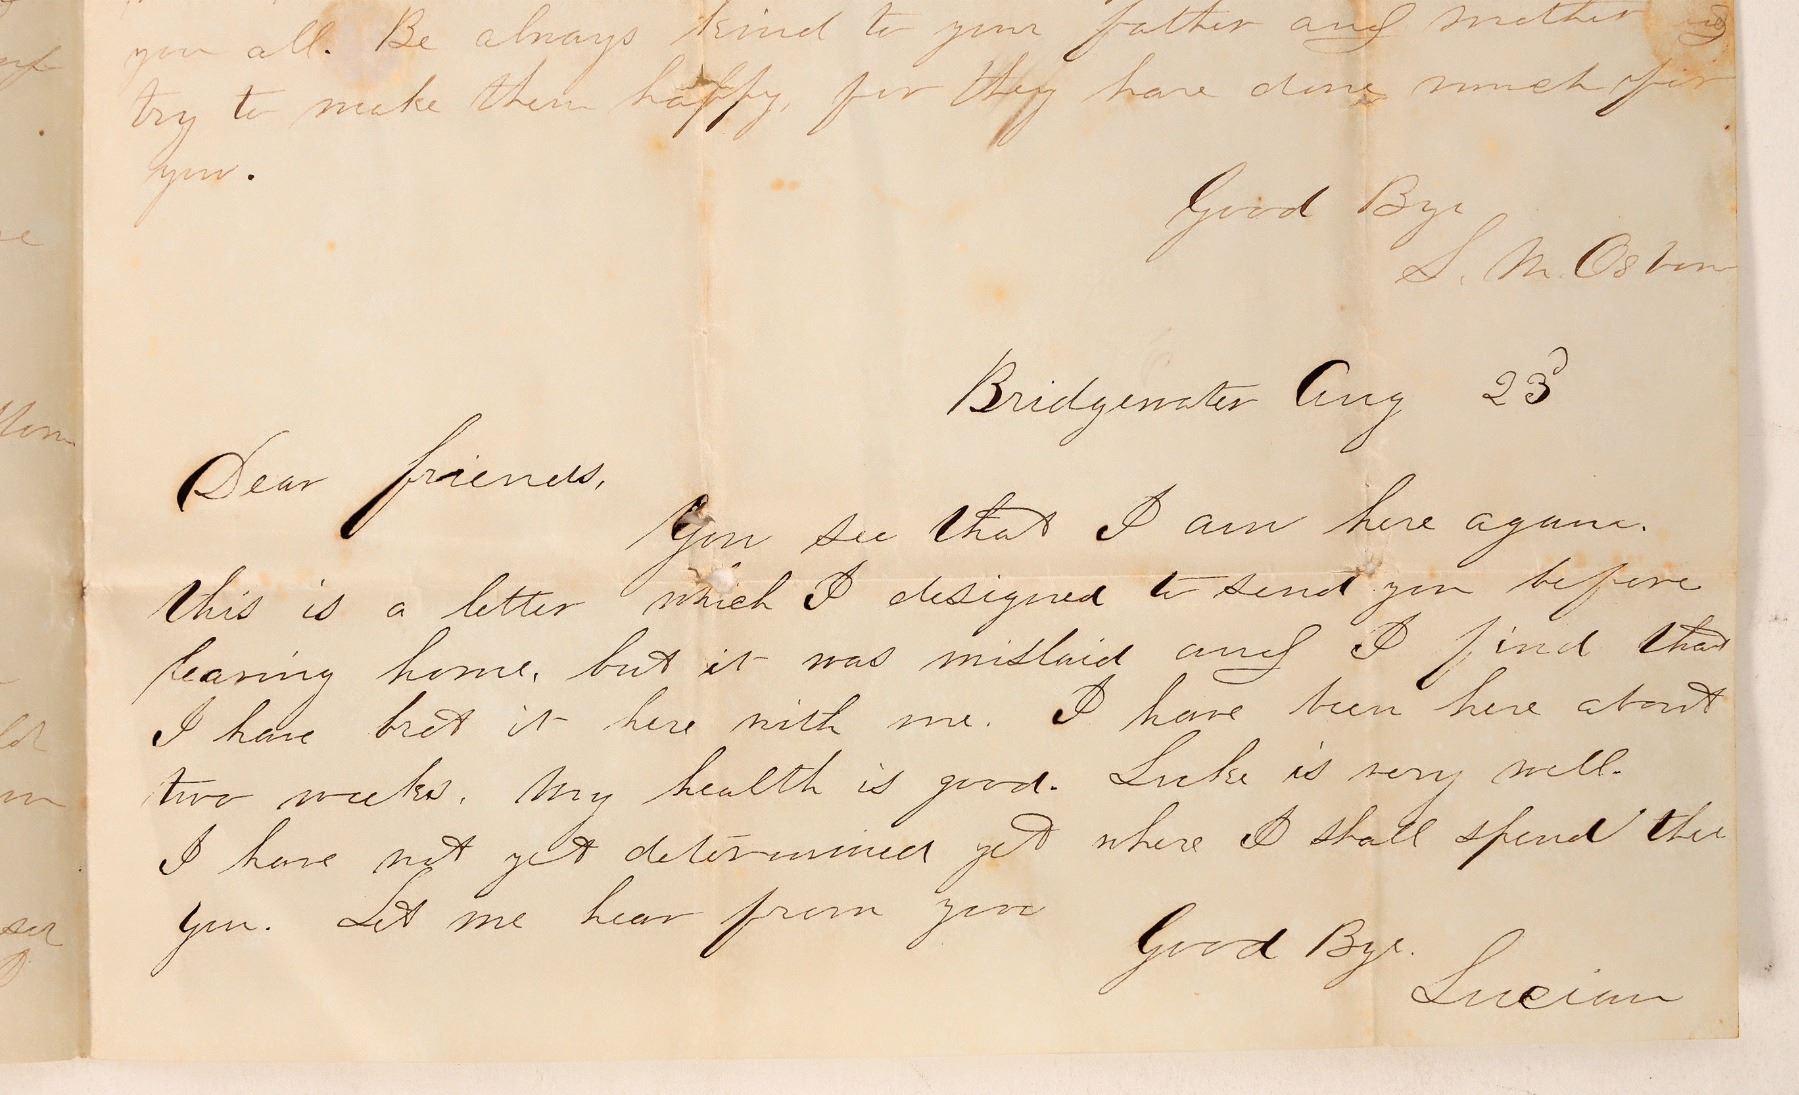 you all. Be always kind to your father and mother and
try to make them happy, for they have done much for
you.
Good Bye
L. M. Osborn
Bridgewater Aug 23d
Dear friends,
You see that I am here again.
this is a letter which I designed to send you before
leaving home, but it was mislaid and I find that
I have brot it here with me. I have been here about
two weeks. My health is good. Luke is very well.
I have not yet determined yet where I shall spend the
yen. Let me hear from you
Good Bye.
Lucian